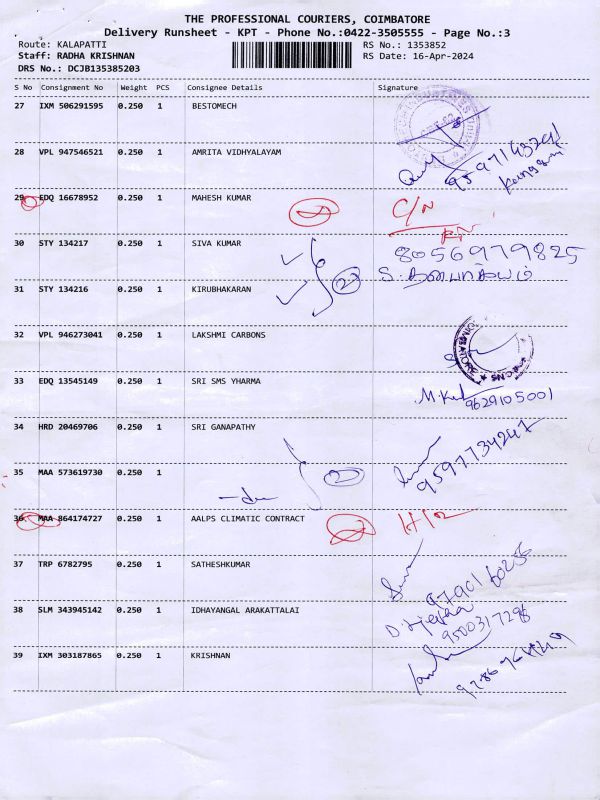 THE PROFESSIONAL COURIERS, COIMBATORE
Delivery Runsheet - KPT - Phone No.:0422-3505555 - Page No.:3
Route: KALAPATTI
RS No.: 1353852
Staff: RADHA KRISHNAN
RS Date: 16-Apr-2024
DRS No.: DCJB135385203
S No Consignment No Weight PCS Consignee Details Signature
27 IXM 506291595 0.250 1 BESTOMECH
28 VPL 947546521 0.250 1 AMRITA VIDHYALAYAM
29 EDQ 16678952 0.250 1 MAHESH KUMAR C/N
30 STY 134217 0.250 1 SIVA KUMAR 8056979825
31 STY 134216 0.250 1 KIRUBHAKARAN 2
32 VPL 946273041 0.250 1 LAKSHMI CARBONS
33 EDQ 13545149 0.250 1 SRI SMS YHARMA 9629105001
34 HRD 20469706 0.250 1 SRI GANAPATHY
35 MAA 573619730 0.250 1 2 9597734247
36 MAA 864174727 0.250 1 AALPS CLIMATIC CONTRACT
37 TRP 6782795 0.250 1 SATHESHKUMAR
38 SLM 343945142 0.250 1 IDHAYANGAL ARAKATTALAI 9500317298
39 IXM 303187865 0.250 1 KRISHNAN